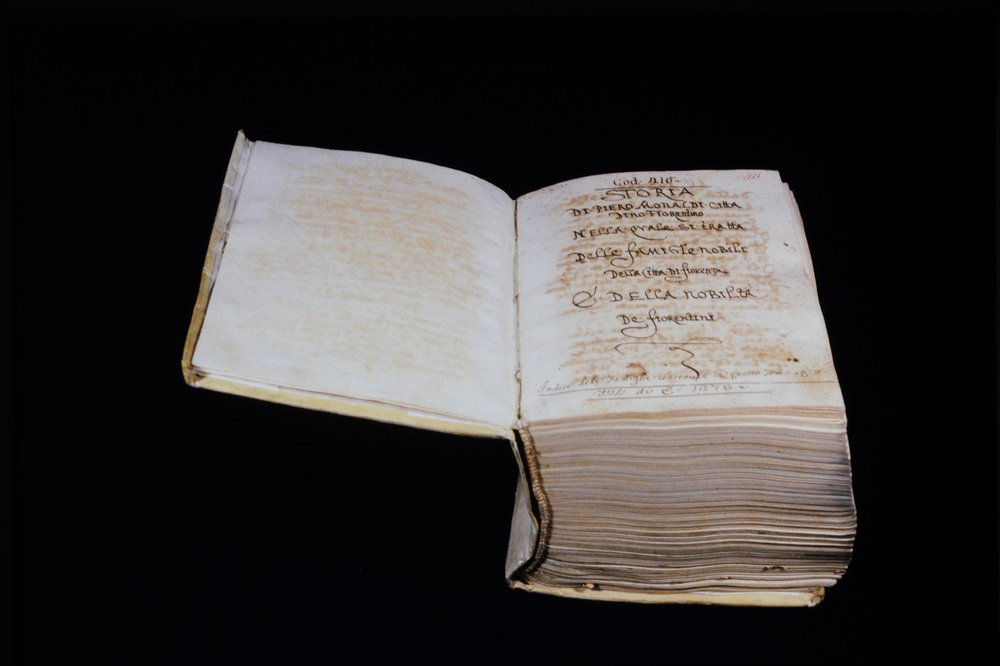 Cod. 418.
STORIA
DI PIERO MONALDI CITTA
DINO FIORENTINO
NELLA QVALE SI TRATTA
DELLE FAMIGLE NOBILI
DELLA CITTA DI FIORENZA
E DELLA NOBILTA
DE FIORENTINI
Indice delle famiglie